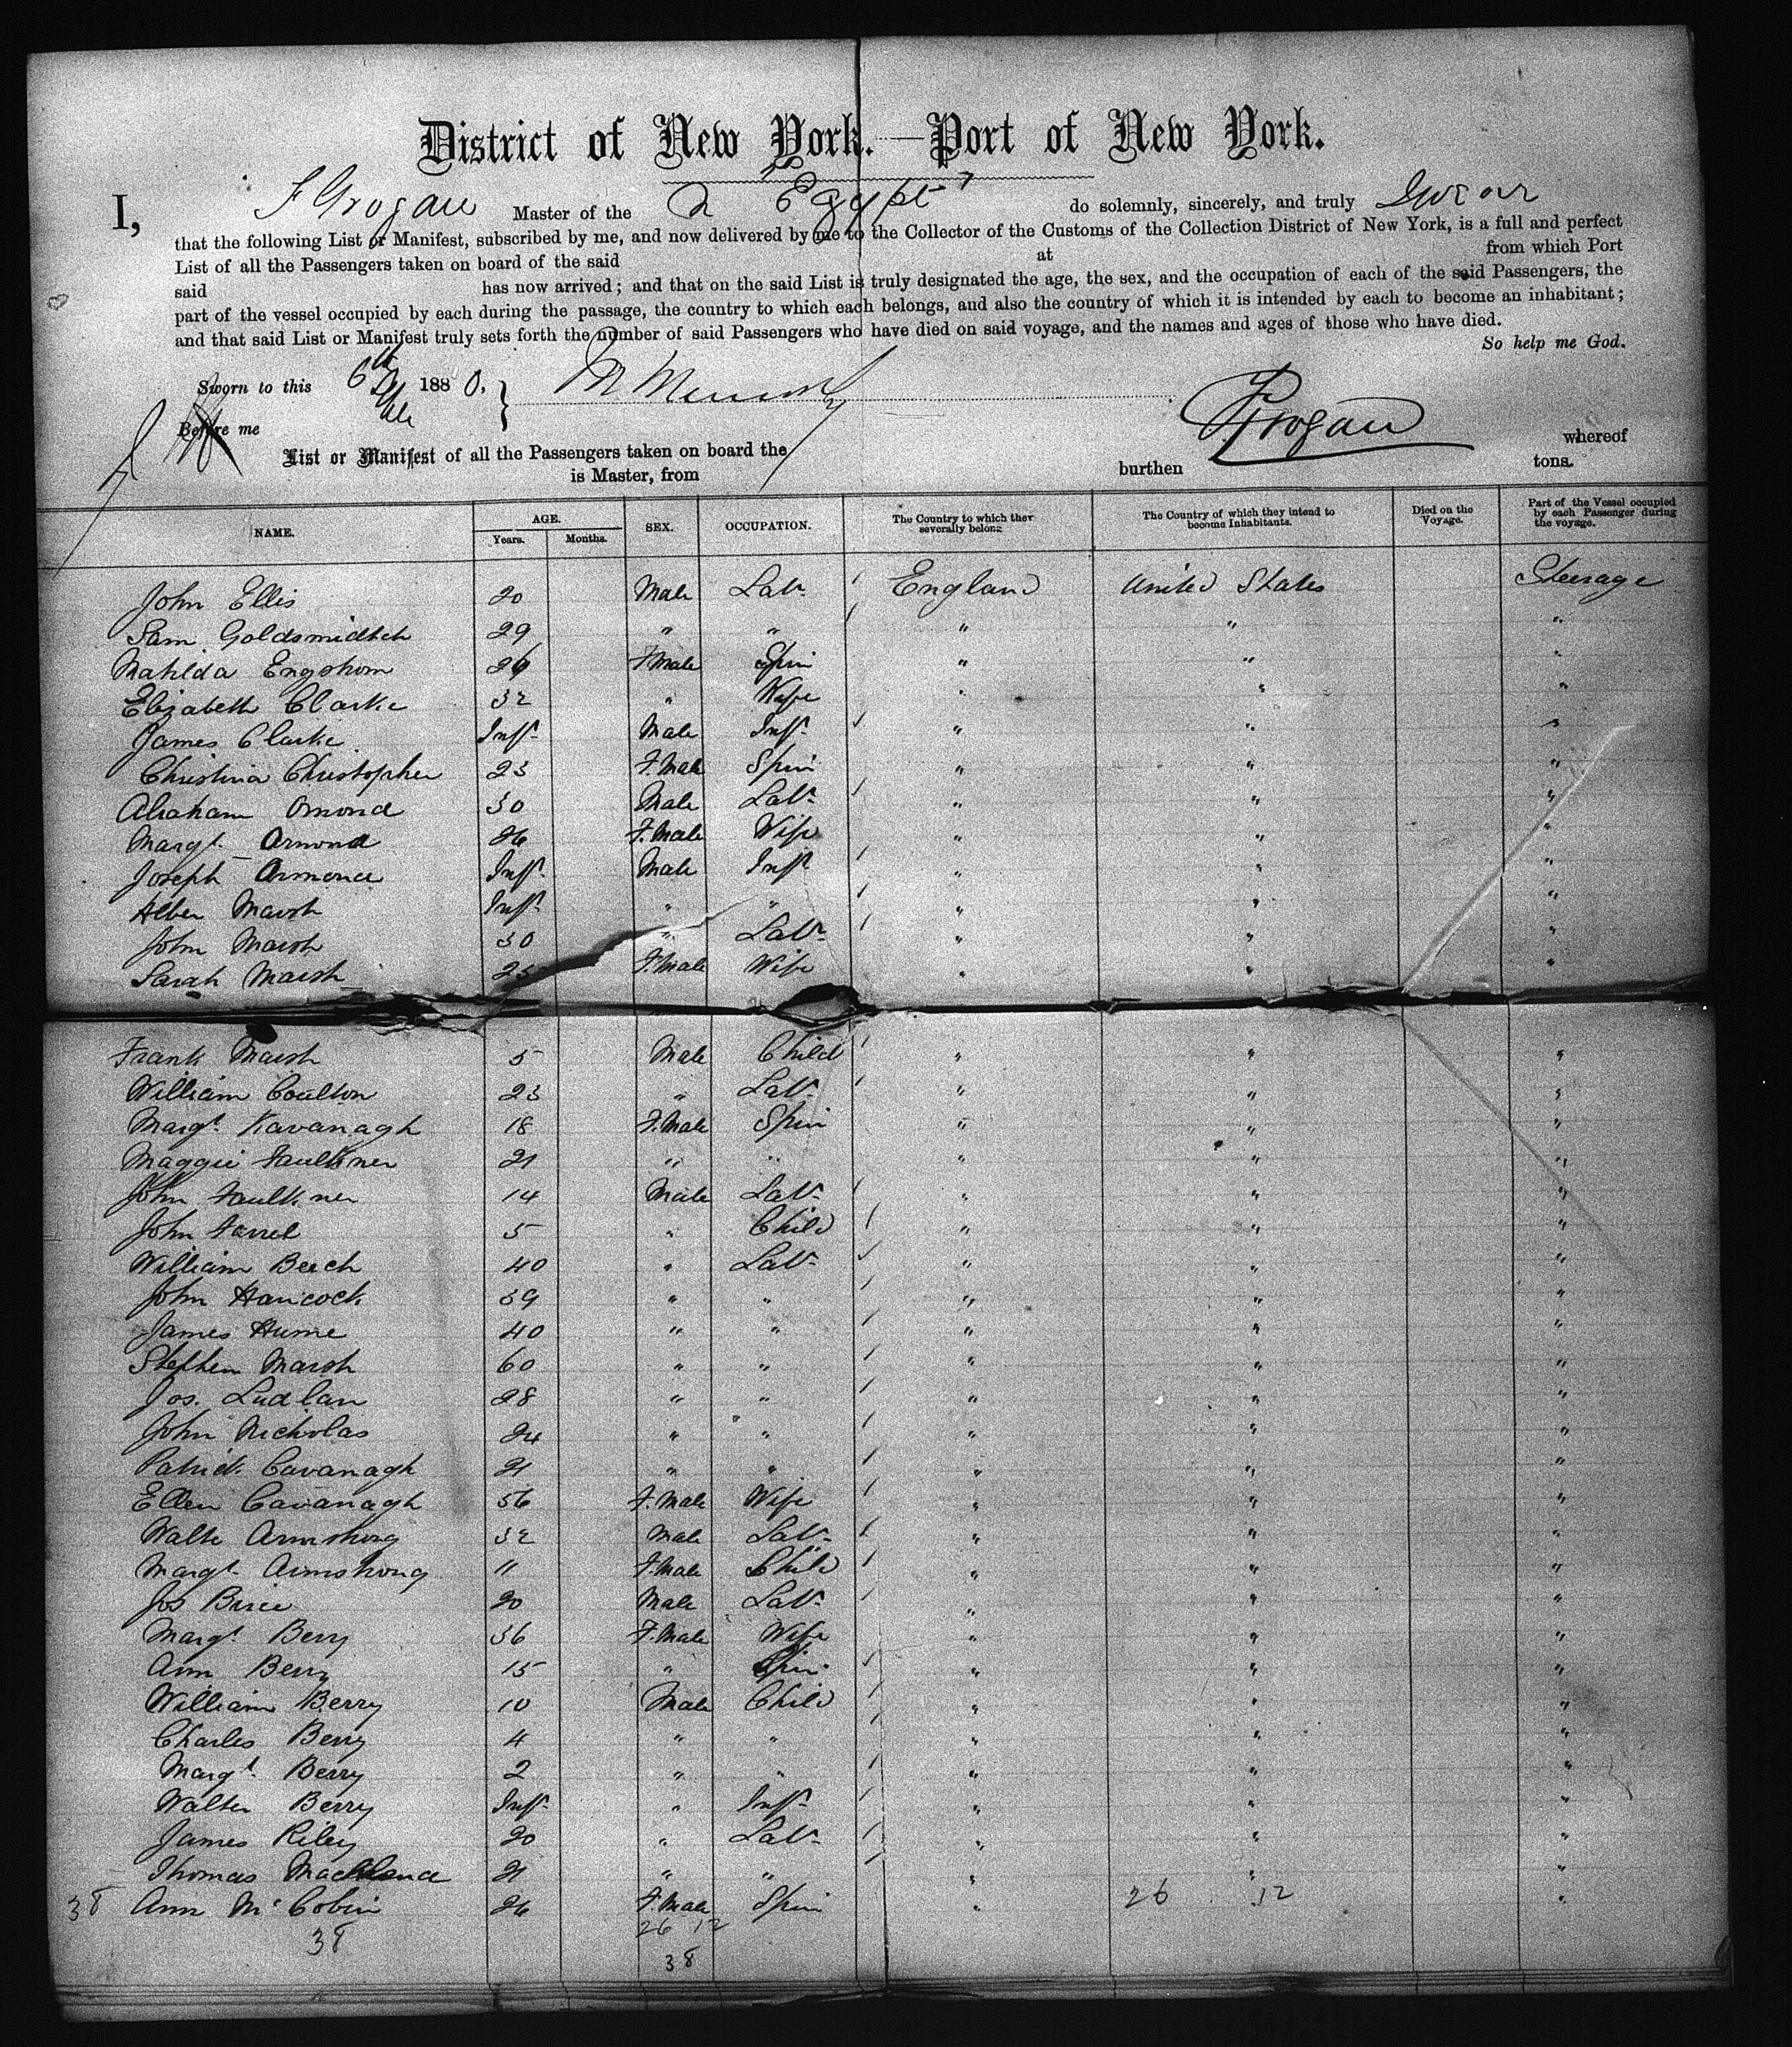 District of New York.—Port of New York.
I, F Grogan Master of the "Egypt" do solemnly, sincerely, and truly Swear
that the following List or Manifest, subscribed by me, and now delivered by me to the Collector of the Customs of the Collection District of New York, is a full and perfect
List of all the Passengers taken on board of the said at from which Port
said has now arrived; and that on the said List is truly designated the age, the sex, and the occupation of each of the said Passengers, the
part of the vessel occupied by each during the passage, the country to which each belongs, and also the country of which it is intended by each to become an inhabitant;
and that said List or Manifest truly sets forth the number of said Passengers who have died on said voyage, and the names and ages of those who have died.
So help me God.
Sworn to this 6th 1880,
Before me
F Grogan
List or Manifest of all the Passengers taken on board the whereof
is Master, from burthen tons.
NAME. AGE. Years. Months. SEX. OCCUPATION. The Country to which they severally belong. The Country of which they intend to become Inhabitants. Died on the Voyage. Part of the Vessel occupied by each Passenger during the voyage.
John Ellis 20 Male Labr England United States Steerage
Sam. Goldsmidtch 29 " " " " "
Matilda Engstrom 26 F.Male Spin " " "
Elizabeth Clarke 32 " Wife " " "
James Clarke Inft Male Inft " " "
Christina Christopher 23 F.Male Spin " " "
Abraham Omond 30 Male Labr " " "
Margt. Ormond 26 F.Male Wife " " "
Joseph Ormond Inft Male Inft " " "
Alber Marsh Inft " " " " "
John Marsh 30 " Labr " " "
Sarah Marsh 25 F.Male Wife " " "
Frank Marsh 5 Male Child " " "
William Coulton 23 " Labr " " "
Margt. Kavanagh 18 F.Male Spin " " "
Maggie Faulkner 21 " " " " "
John Faulkner 14 Male Labr " " "
John Farrel 5 " Child " " "
William Beech 40 " Labr " " "
John Hancock 39 " " " " "
James Hume 40 " " " " "
Stephen Marsh 60 " " " " "
Jos. Ludlan 28 " " " " "
John Nicholas 24 " " " " "
Patrick Cavanagh 21 " " " " "
Ellen Cavanagh 56 F.Male Wife " " "
Walte Armstrong 32 Male Labr " " "
Margt. Armstrong 11 F.Male Child " " "
Jos Birce 20 Male Labr " " "
Margt. Berry 36 F.Male Wife " " "
Ann Berry 15 " Spin " " "
William Berry 10 Male Child " " "
Charles Berry 4 " " " " "
Margt. Berry 2 " " " " "
Walter Berry Inft " Inft " " "
James Riley 20 " Labr " " "
Thomas 21 " " " " "
38 Ann McCobin 26 F.Male Spin " 26 12 "
38 26 12
38